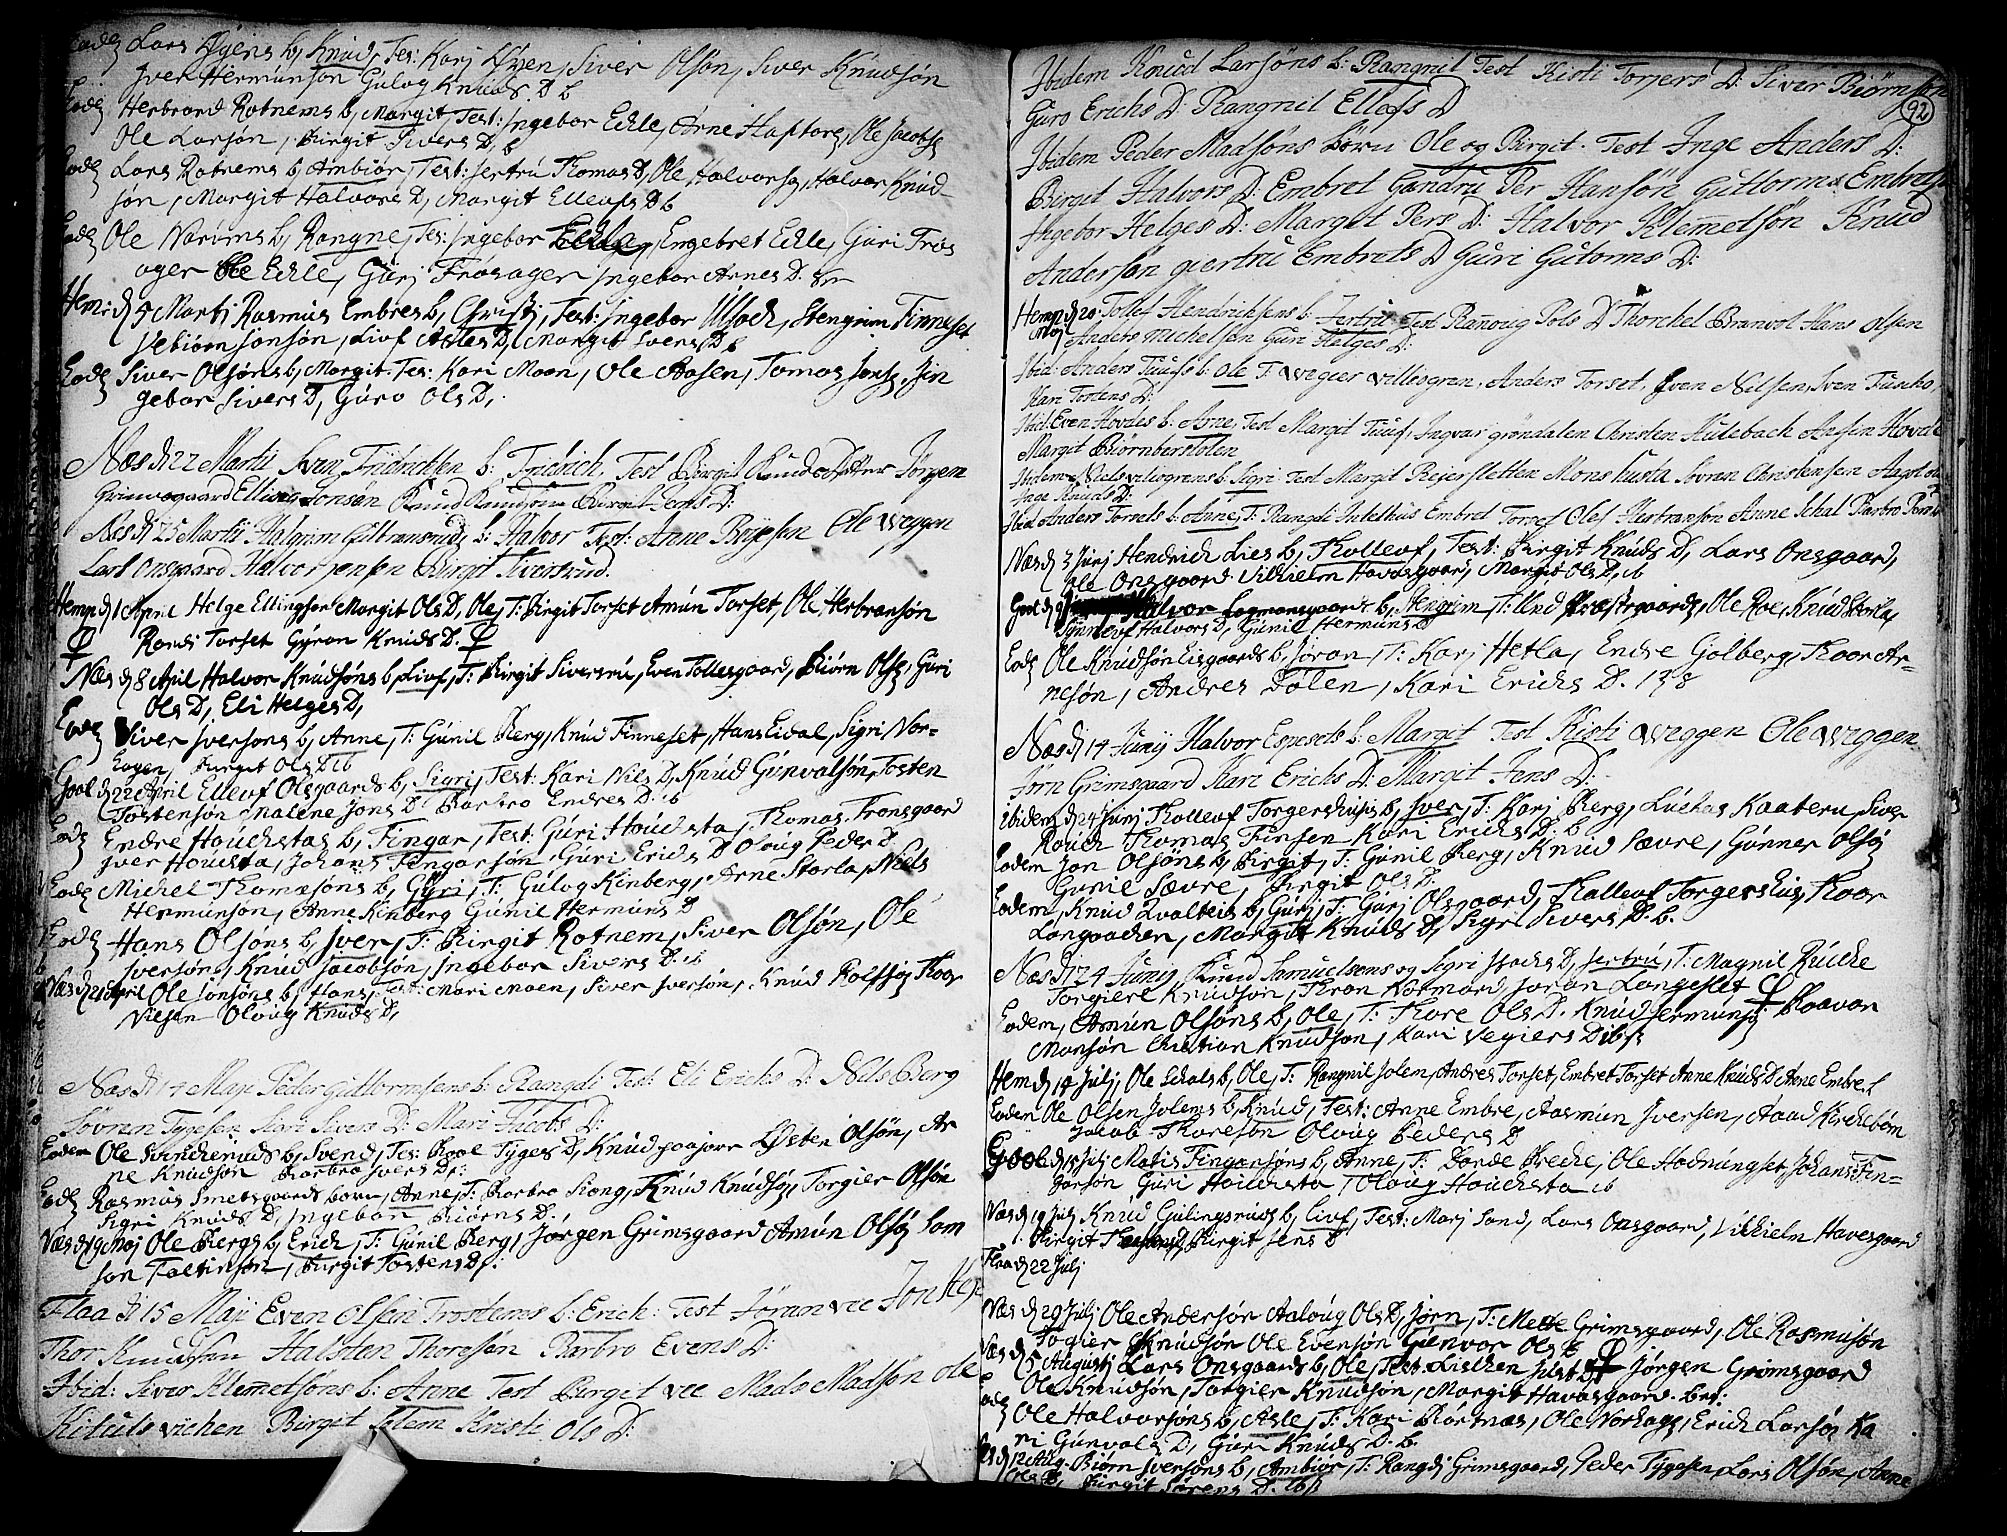 Eodem Lars Øyens b, Knud, Tes: Karj Øyen, Siver Olsøn, Siver Knudsøn
Jver Hermunsøn Gulog Knuds D b
Eodem Herbrand Rotnems b, Margit, Test: Ingebor Eckle, Arne Haftorsz, Ole Jacobsz
Ole Larsøn, Birgit Sivers D, b
Eodem Lars Rotnems b, Ambiør, Test: Jertru Thomas D, Ole Halvorsz, Halvor Knud
søn, Margit Halvors D, Margit Ellevss D b
Eodem Ole Narums b, Rangne, Tes: Ingebor Eckle, Engebret Eckle, Guri Frøs
ager Ole Eckle, Gurj Frøsager Ingebor Arnes D.
Hem: d 5 Martj Rasmus Embres b, Christj, Test: Ingebor Ulsack, Stengrim Finneset
Vebiørn Jonsøn, Livf Asles D, Margit Ivers D b
Eodem Siver Olsøns b, Margit. Tes: Kari Moen, Ole Aasen, Tomas Jonsz, Jn
gebor Sivers D, Guro Ols D,
Næs d 22 Martii Sven Fridrichsen b: Fridrich, Test Birgit Knudsdatter Jørgen
Grimsgaard Elling Jonsøn Knud Knudsøn Birgit Jens D:
Næs d 25 Martii Halgrim Gulbransrud b: Halvor Test: Anne Boyesen Ole Veggen
Lars Onsgaard Halvor Jensen Birgit Sivertsrud.
Hemp d 1 April Helge Ellingsøn Margit Ols D, Ole, T: Birgit Torset Amun Torset, Ole Herbransøn
Randi Torset Gyran Knuds D.
Næs d 8 Apil Halvor Knudsøns b, Livf, T: Birgit Siversru, Even Tollesgaard, Biørn Olsz, Guri
Ols D, Eli Helges D,
Eodem Siver Jversøns b, Anne, T: Gunil Berg, Knud Finneset, Hans Eidal, Sigri Nor-
Eagen, Birgit Ols D ib
Gool d 22 April Ellevf Olsgaards b, Sigri, Test: Kari Nils D, Knud Gunvalsøn, Tosten
Tostensøn Malene Jons D Barbro Endres D. ib
Eodem Endre Houchstas b, Fingar, Test: Guri Houchsta, Thomas Tronsgaard
Jver Houcksta, Johans Fingarsøn Guri Erichs D Oloug Peders D
Eodem Michel Thomæsøns b, Gyri, T: Gulog Kinberg, Arne Storla, Niels
Hermunsøn, Anne Kinberg Gunil Hermuns D
Eodem Hans Olsøns b, Jver, T: Birgit Rotnem, Siver Olsøn, Ole
Jversøn, Knud Jacobsøn, Ingebor Sivers D. ib
Næs d 29 April Ole Jonsøns b, Hans, Test: Mari Moen, Siver Jversøn, Knud Rolfsøz Thoor
Nilsen Oloug Knuds D,
Næs d 14 Maje Peder Guttormsens b: Rangdi Test: Eli Erichs D: Nils Berg
Søvren Tygesen Kari Sivers D: Mari Jacobs D:
Eodem Ole Svencheruds b, Svend, Tes: Boel Tyges D, Knud Østen Olsøn, Ar
ne Knudsøn Barbro Jvers D:
Eodem Rasmus Smetsgaards born, Anne, T: Barbro Skong, Knud Knudsøz, Torgier Olsøn
Sigri Knuds D, Ingebor Biørns D.
Næs d 19 Maj Ole Bergs b, Erich, T: Gunil Berg, Jørgen Grimsgaard Amun Olsøz Sam
søn Foltinsøn, Birgit Tostens D:
Flaa d 15 Maij Even Olsen Trostems b: Erich: Test Jøran Vee Jon
Thor Knudsen Halsten Thoresøn Barbro Evens D:
Ibid: Siver Klemetsøns b: Anne Test Birget Vee Mads Madsøn Ole
Kituls Vichen Birgit Stem Kristi Ols D:
92
Ibidem Knud Larsøns b: Rangnil Test Kisti Torgers D: Siver Biørnsøn
Guro Erichs D: Rangnil Ellefs D
Ibidem Peder Madsøns børn Ole og Birgit. Test Inge Anders D:
Birgit Halvors D: Embret Gandru Per Hansøn Guttorms Embrets
Ingebor Helges D: Margit Pers D: Halvor Klemetsøn Knud
Andersøn giertru Embrets D Guri Gutorms D:
Hemp d 20 Maj Tollef Hendrichsens b: Jertru Test Ranoug Pols D Thorckel Branvol Hans Olsen
Anders Michelsen Guri Helges D:
Ibid: Anders Tuufs b: Ole T: Vegier Villesgren, Anders Torset, Even Nilsen, Sven Funcho,
Kari Tostens D:
Ibid: Even Hovdes b: Arne, Test Margit Tuuf, Ingvar grøndalen Christen Kulebach Anfin Hovde
Margit Biørnberstølen
Ibidem Niels Villesgrens b: Sigri: Test Margit Reiersletten Mons Kusta Søvren Christensen Aagot
Inge Knuds D:
Ibid Anders Torsets b: Anne, T: Rangdi Intelhus Embret Torset Olef Herbransøn Anne Schal Barbro
Næs d 3 Junj Hendrich Lies b, Tholleuf, Test: Birgit Knuds D, Lars Onsgaard,
Ole Onsgaard Vilhielm Havasgaard, Margit Ols D, ib
Gool d 9 Halvor Lagmansgaards b, Stengrim, T: Und Præstgaards, Ole Roe, Knud Storla
Synnevf Halvors D, Gunil Hermuns D
Eodem Ole Knudsøn Eisgaards b, Jøran, T: Karj Hetla, Endre Golberg, Thoor Ar-
nesøn, Andres Dølen, Kari Erichs D.
Næs d 14 Junij Halvor Espesets b: Margit Test Kisti Veggen Ole Veggen
Jørn Grimsgaard Kari Erichs D: Margit Jens D:
Ibidem d 24 Junj Tholleuf Torgershusis b, Jver, T: Karj Berg, Luchas Kaateru, Siver
Rouch Thomas Finsen Kari Erichs D: b
Eodem Jon Olsøns b, Birgit, T: Gunil Berg, Knud Sævre, Gunner Olsøz
Gunil Sævre, Birgit Ols D.
Eodem, Knud Qvalteis b, Gurj, T: Gurj Olsgaard, Thollevf Torgershus, Thoor
Langaacker, Margit Knuds D, Sigri Sivers D. b.
Næs d 24 Junij Knud Samuelsøns og Sigri Isachs D, Jertru, T: Magnil Rucke
Torgiere Knudsøn, Thron Jøran Langeslet
Eodem, Amun Olsøns b, Ole, T: Thore Ols D. Knud Hermunsz: Boavor
Monsøn Christian Knudsøn, Kari Vegiers D ib
Hem d 14 Julj, Ole Eckals b, Ole, T: Rangnil Jolen, Andres Torset, Embret Torset Anne Knuds D Arne Embre
Eodem Ole Olsen Jolems b, Knud, Test: Anne Embre, Aasmun Jversen, Aaad Kirckebøm
Jacob Thoresøn Oloug Peders D
Gool d 15 Julj Matis Fingarsøns b, Anne, T: Dorde Brecke, Ole Hodnungset, Johans Fin-
garsøn Guri Houchsta, Oloug Houchsta ib
Næs d 19 Julj Knud Gulingsruds b, Livf, Test: Marj Sand, Lars Onsgaard, Vilhielm Havesgaard
Birgit Birgit Jens D
Flaa d 22 Julj
Næs d 29 Julj Ole Andersøn Aaloug Ols D, Jørn, T: Mette Grimsgaard, Ole Rasmusøn
Togier Knudsøn Ole Evensøn Gunvor Ols D
Næs d 5 Augustj Lars Onsgaards b, Ole, Test: Lischen Jørgen Grimsgaard
Ole Knudsøn, Torgier Knudsøn, Margit Havasgaard.
Eodem Ole Halvorsøns b, Asle, T: Kari Børtnæs, Ole Norhage, Erich Larsøz Ka
ri Gunvals D, Guri Knuds D. b.
d 12 Aug. Biørn Jversøns b, Ambiør, T: Rangdj Grimsgaard, Peder Tygesen Lars Olsøn, Anne
Ols D, Birgit Sørens D. ib